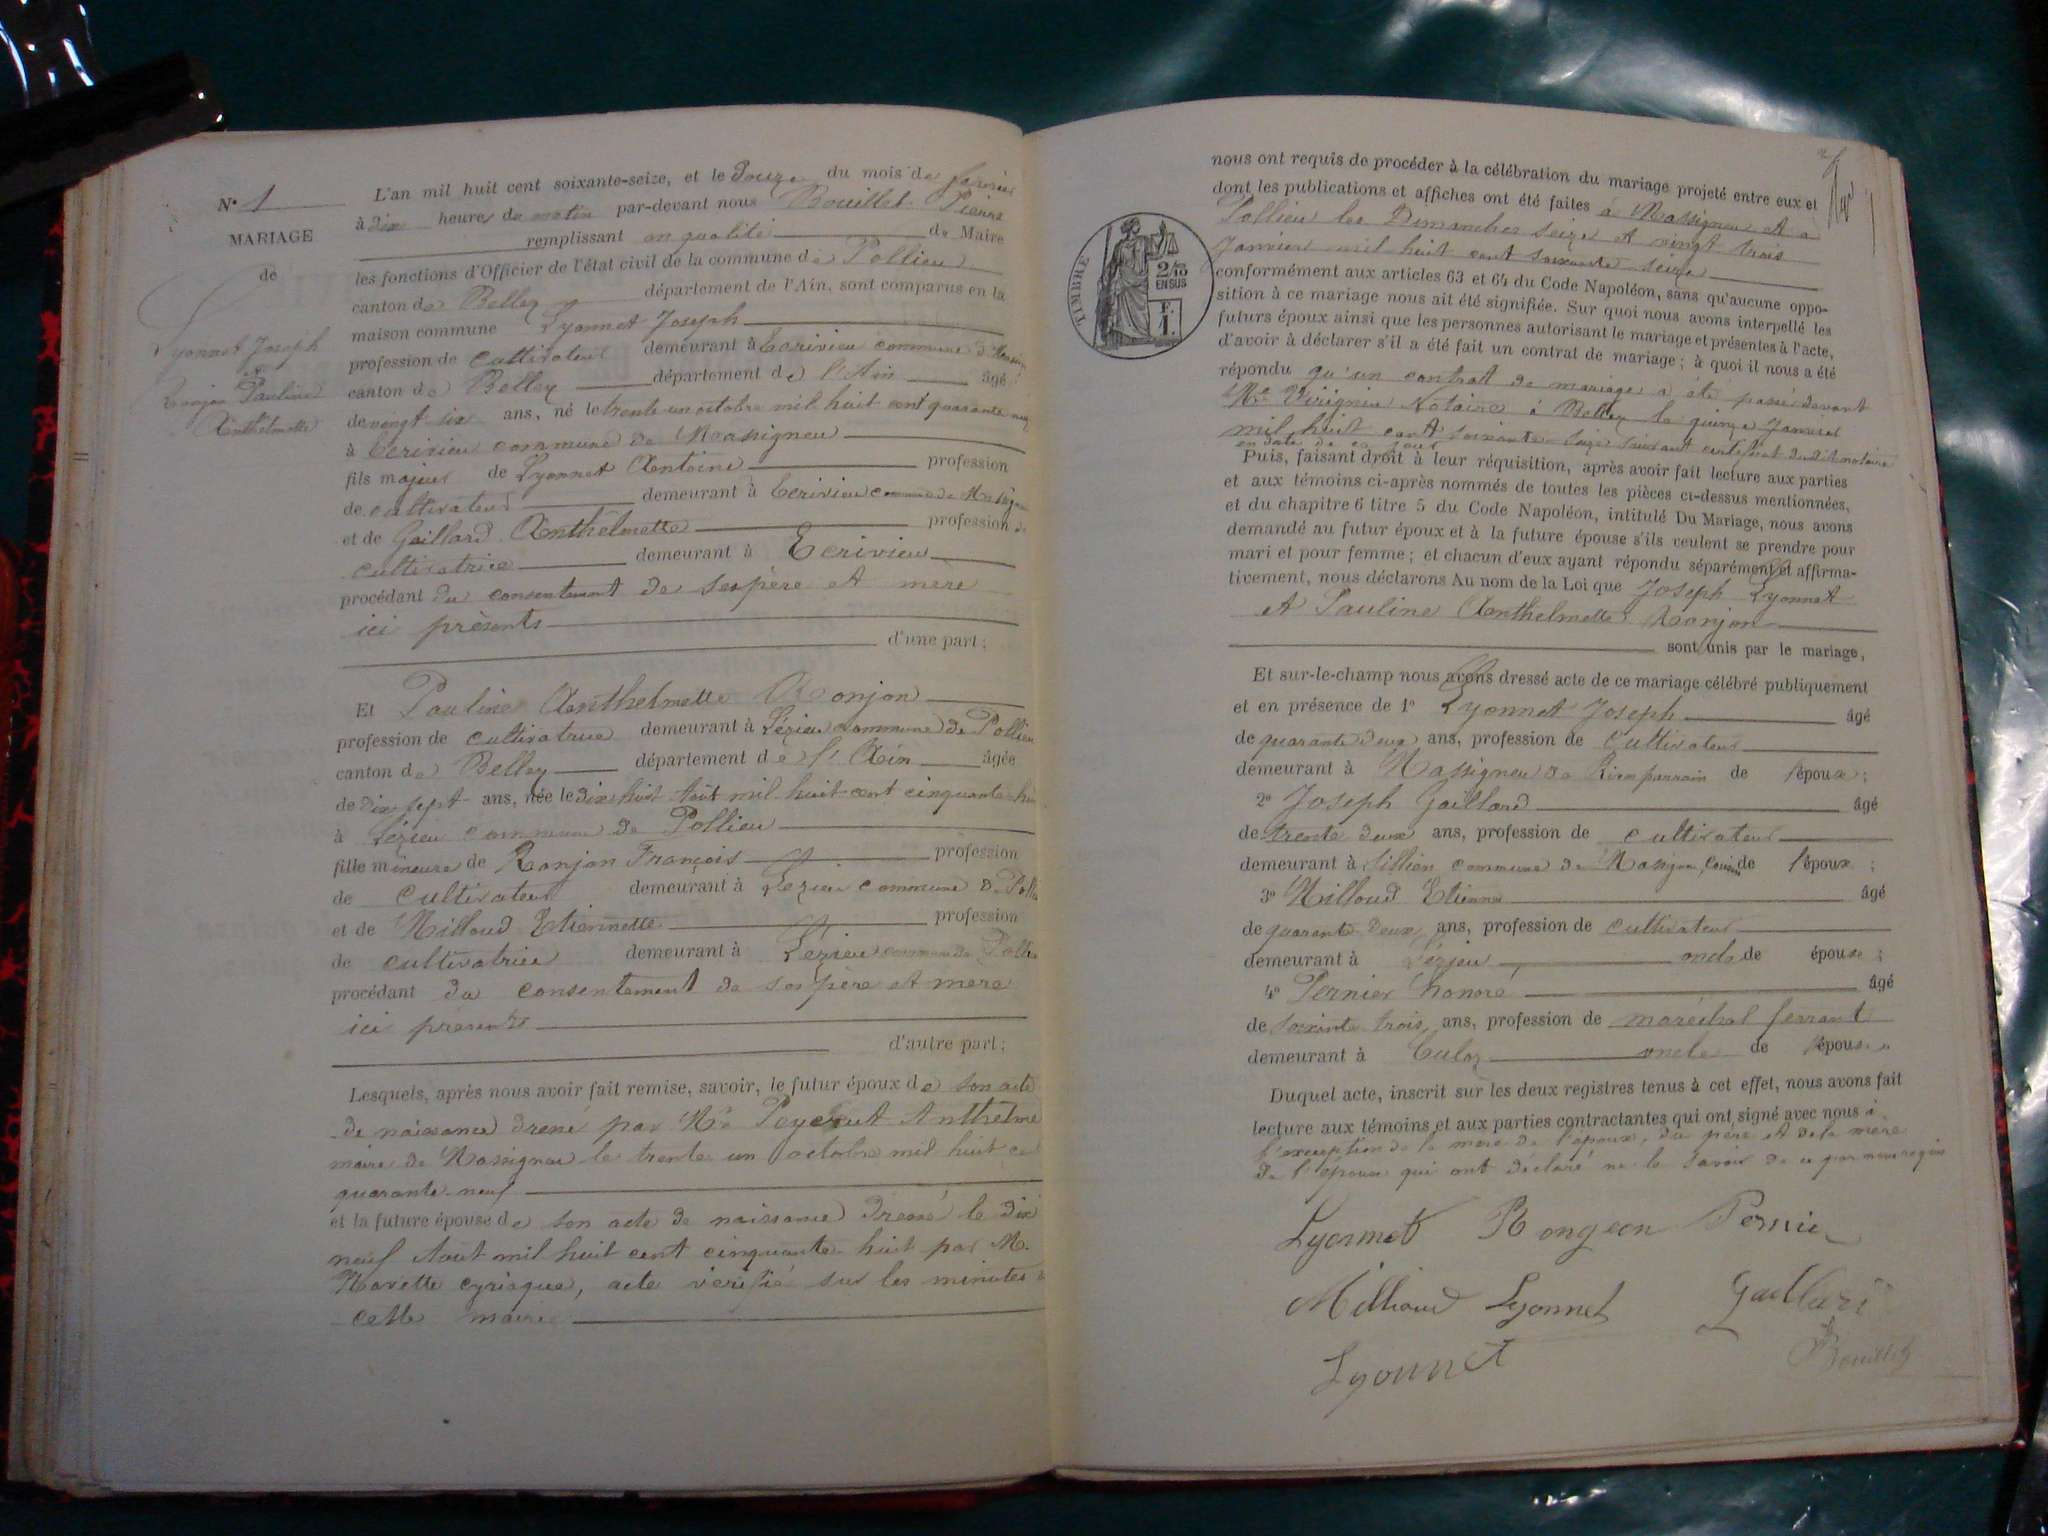 N° 1
MARIAGE
de
Lyonnet Joseph
et
Ronjon Pauline
Anthelmette
L'an mil huit cent soixante-seize, et le Douze du mois de février
à dix heures du matin par-devant nous Bouillet Pierre
remplissant en qualité de Maire
les fonctions d'Officier de l'état civil de la commune de Pollieu
canton de Belley département de l'Ain, sont comparus en la
maison commune Lyonnet Joseph
profession de cultivateur demeurant à Ecrivieu commune de Massigneu
canton de Belley département de l'Ain âgé
de vingt six ans, né le trente un octobre mil huit cent quarante neuf
à Ecrivieu commune de Massigneu
fils majeur de Lyonnet Antoine profession
de cultivateur demeurant à Ecrivieu commune de Massigneu
et de Gaillard Anthelmette profession de
cultivatrice demeurant à Ecrivieu
procédant du consentement de ses père et mère
ici présents
d'une part;
Et Pauline Anthelmette Ronjon
profession de cultivatrice demeurant à Lézieu commune de Pollieu
canton de Belley département de l'Ain âgée
de dix sept ans, née le dix huit Aout mil huit cent cinquante huit
à Lézieu commune de Pollieu
fille mineure de Ronjon François profession
de cultivateur demeurant à Lezieu commune de Pollieu
et de Milloud Etiennette profession
de cultivatrice demeurant à Lézieu commune de Pollieu
procédant du consentement de ses père et mère
ici présents
d'autre part;
Lesquels, après nous avoir fait remise, savoir, le futur époux de son acte
de naissance dressé par Mr Anthelme
maire de Massigneu le trente un octobre mil huit cent
quarante-neuf
et la future épouse de son acte de naissance dressé le dix
neuf Aout mil huit cent cinquante-huit par M.
Navette cyriaque, acte vérifié sur les minutes de
cette mairie
nous ont requis de procéder à la célébration du mariage projeté entre eux et
dont les publications et affiches ont été faites à Massigneu et a
Pollieu les Dimanches seize et vingt trois
Janvier mil huit cent soixante-seize
TIMBRE
2/10
EN SUS
F.
1.
conformément aux articles 63 et 64 du Code Napoléon, sans qu'aucune oppo-
sition à ce mariage nous ait été signifiée. Sur quoi nous avons interpellé les
futurs époux ainsi que les personnes autorisant le mariage et présentes à l'acte,
d'avoir à déclarer s'il a été fait un contrat de mariage; à quoi il nous a été
répondu qu'un contrat de mariage a été passé devant
Me Notaire à Belley le quinze Janvier
mil huit cent soixante-seize suivant certificat du dit notaire
en date de ce jour
Puis, faisant droit à leur réquisition, après avoir fait lecture aux parties
et aux témoins ci-après nommés de toutes les pièces ci-dessus mentionnées,
et du chapitre 6 titre 5 du Code Napoléon, intitulé Du Mariage, nous avons
demandé au futur époux et à la future épouse s'ils veulent se prendre pour
mari et pour femme; et chacun d'eux ayant répondu séparément et affirma-
tivement, nous déclarons Au nom de la Loi que Joseph Lyonnet
et Pauline Anthelmette Ronjon
sont unis par le mariage,
Et sur-le-champ nous avons dressé acte de ce mariage célébré publiquement
et en présence de 1° Lyonnet Joseph âgé
de quarante deux ans, profession de cultivateur
demeurant à Massigneu de Rives parrain de l'époux;
2° Joseph Gaillard âgé
de trente deux ans, profession de cultivateur
demeurant à commune de Massigneu cousin de l'époux;
3° Milloud Etienne âgé
de quarante deux ans, profession de cultivateur
demeurant à Lézieu oncle de épouse;
4° Pernier honoré âgé
de soixante trois ans, profession de maréchal ferrant
demeurant à Culoz oncle de l'épouse.
Duquel acte, inscrit sur les deux registres tenus à cet effet, nous avons fait
lecture aux témoins et aux parties contractantes qui ont signé avec nous à
l'exception de la mère de l'époux, du père et de la mère
de l'épouse qui ont déclaré ne le savoir de ce par nous requis
Lyonnet Rongeon Pernier
Millioud Lyonnet Gaillard
Lyonnet Bouillet